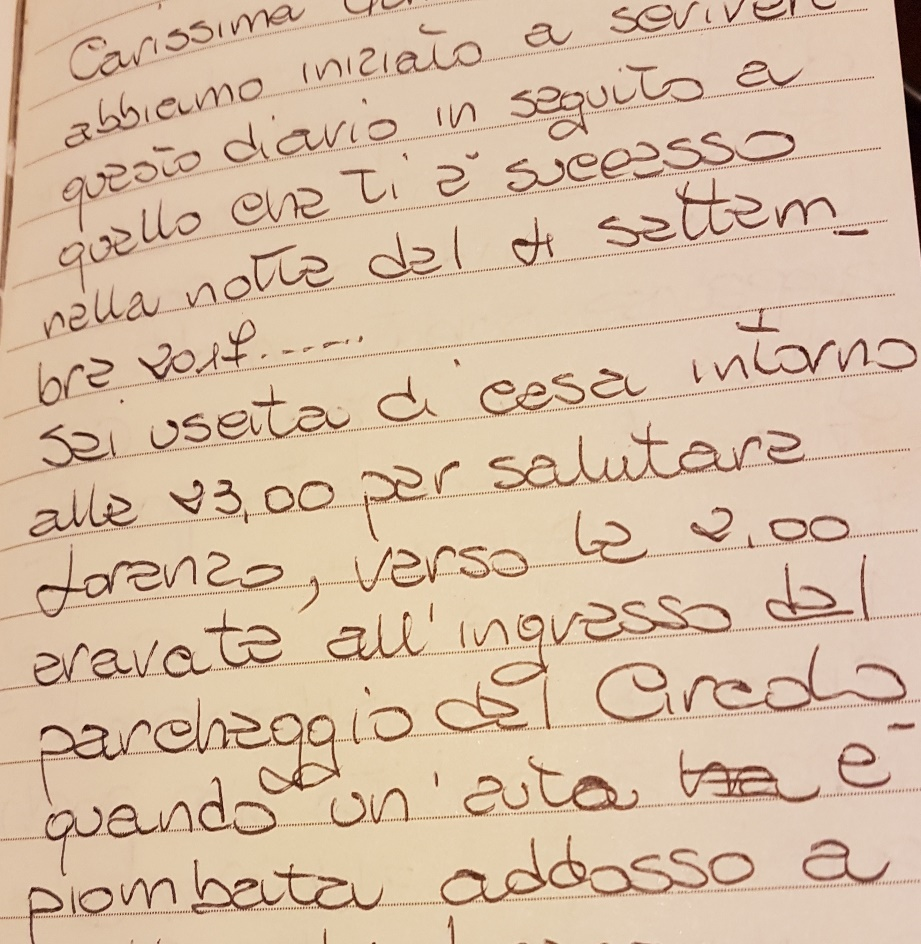 Carissima
abbiamo iniziato a scrivere
questo diario in seguito a
quello che ti è successo
nella notte del 1 settem_
bre 2017......
Sei uscita di casa intorno
alle 23,00 per salutare
Lorenzo, verso le 2,00
eravate all'ingresso del
parcheggio del Circolo
quando un'auto è
piombata addosso a